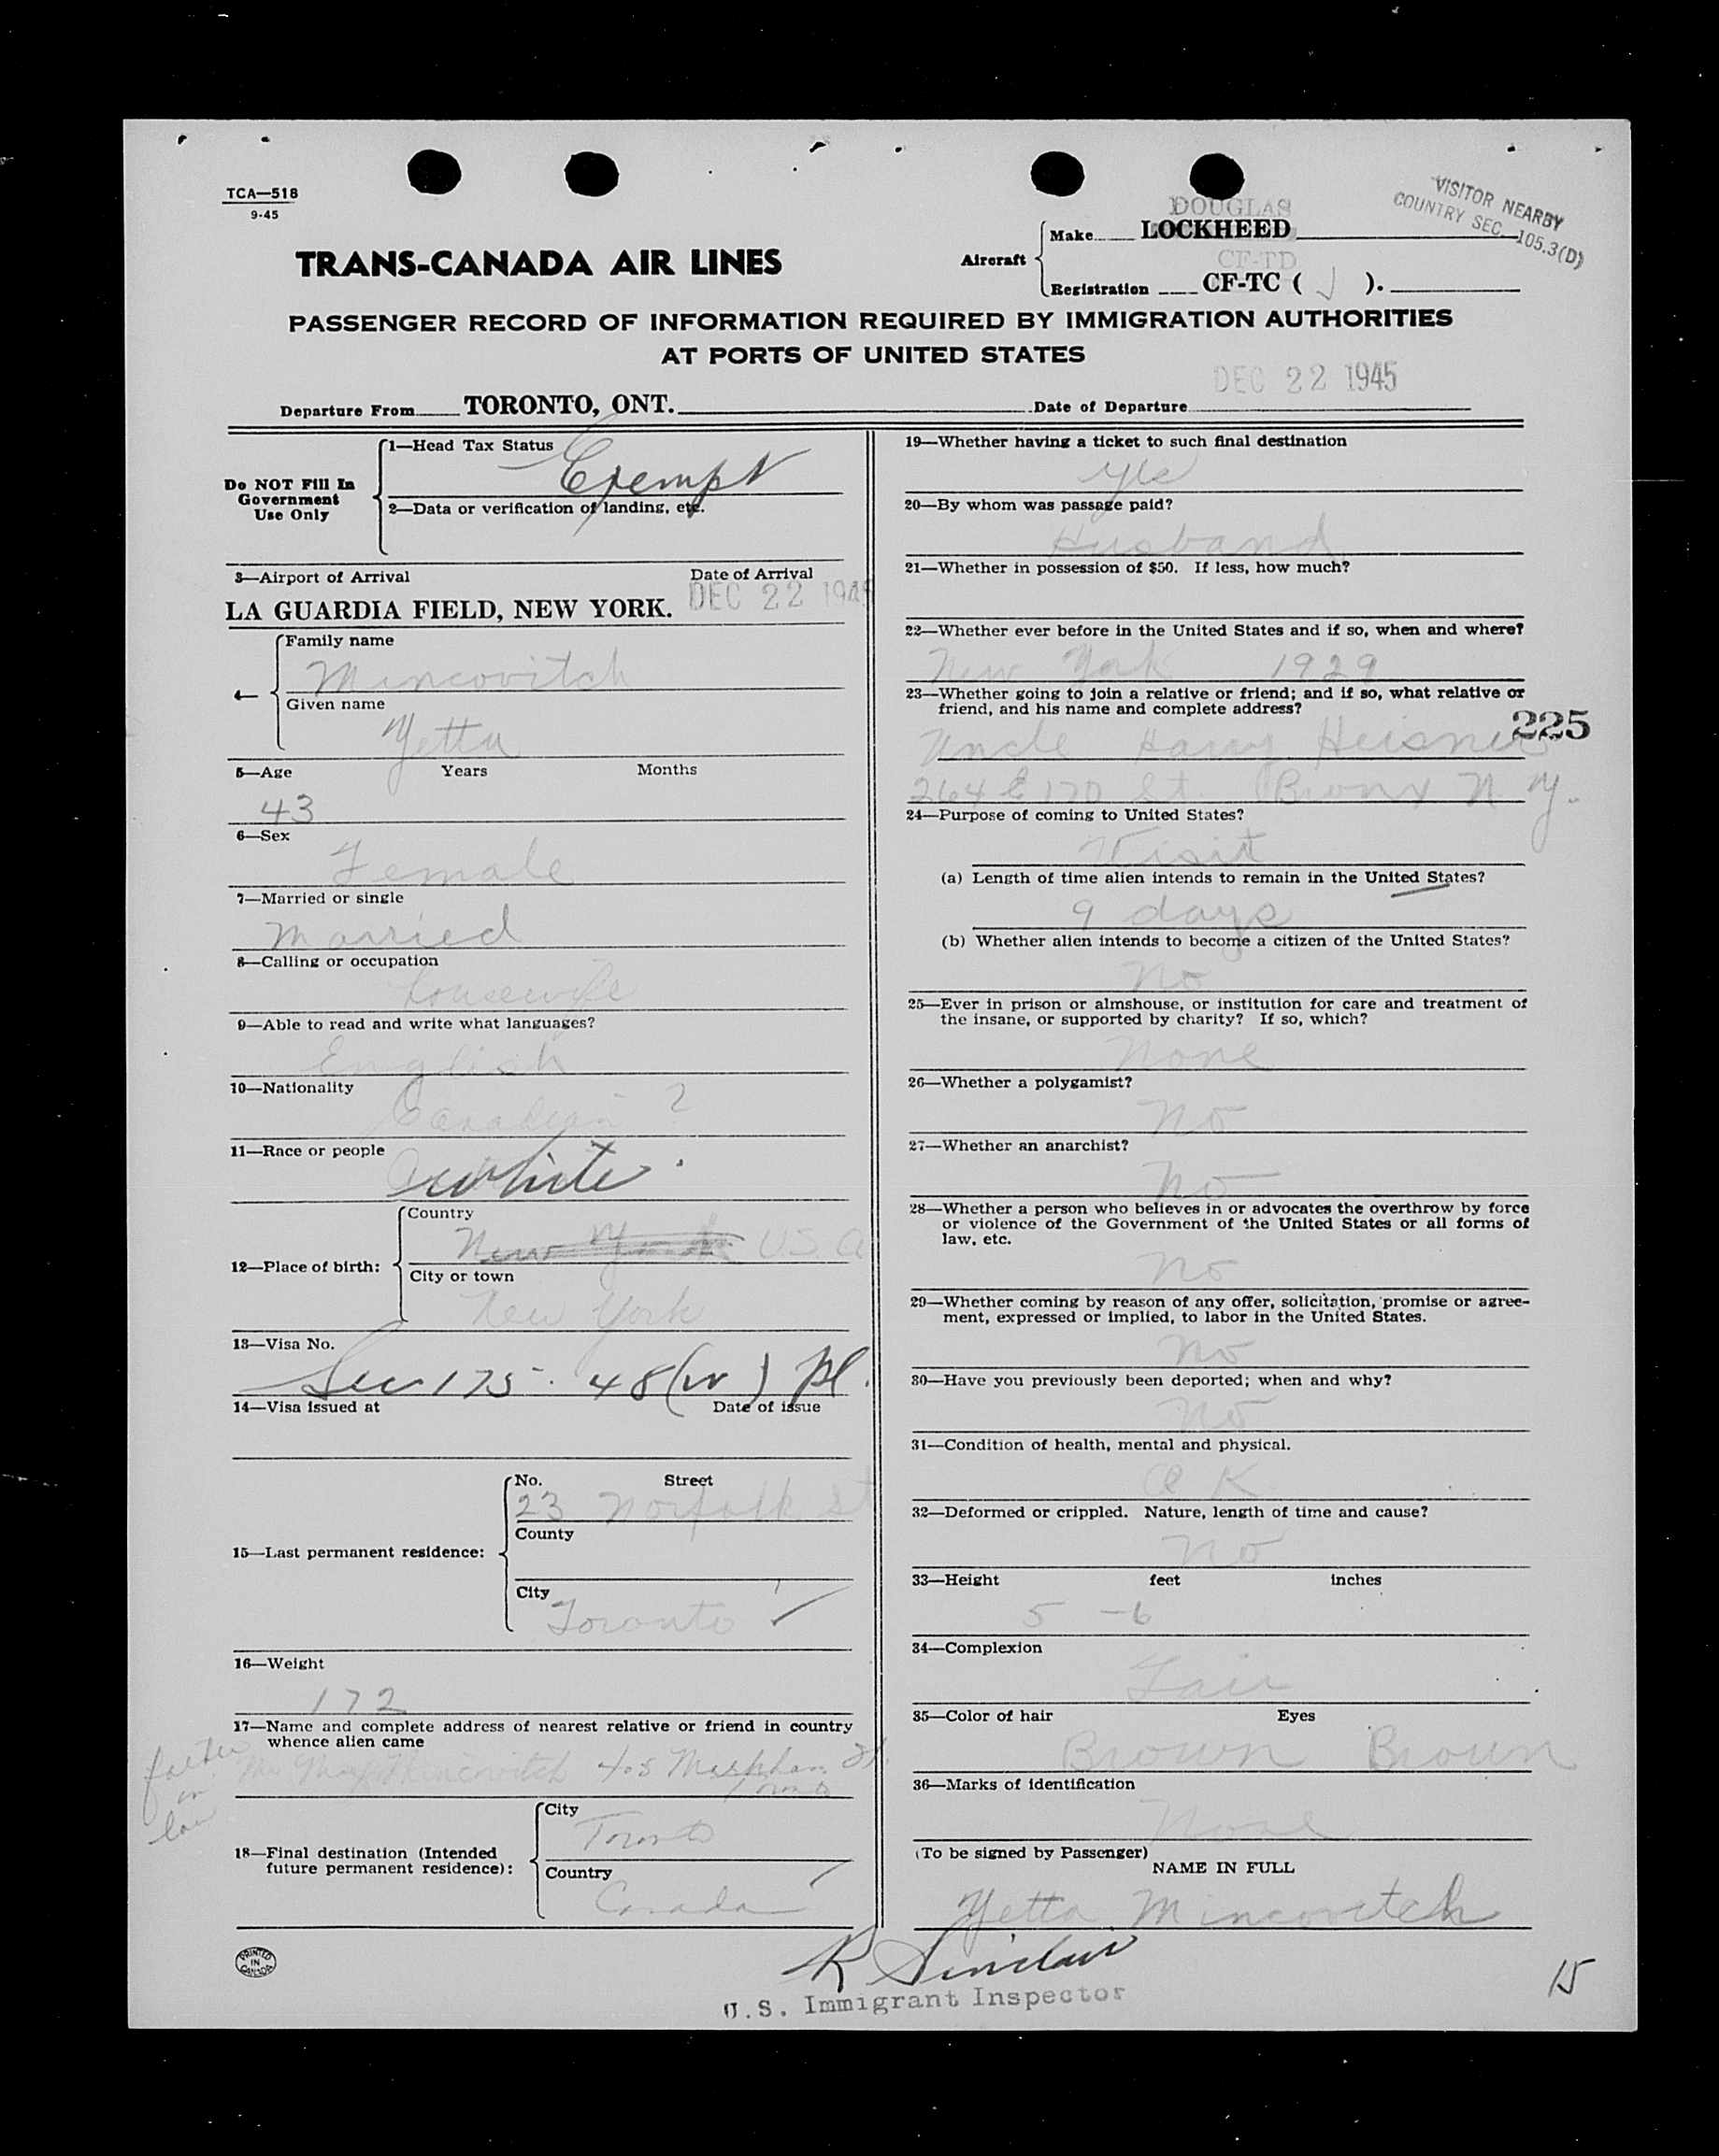 TCA—518
9-45
VISITOR NEARBY
COUNTRY SEC. 105.3(D)
DOUGLAS
Make LOCKHEED
TRANS-CANADA AIR LINES
Aircraft
CF-TD
Registration CF-TC ( J ).
PASSENGER RECORD OF INFORMATION REQUIRED BY IMMIGRATION AUTHORITIES
AT PORTS OF UNITED STATES
DEC 22 1945
Departure From TORONTO, ONT. Date of Departure
Do NOT Fill In
Government
Use Only
1—Head Tax Status
Exempt
2—Data or verification of landing, etc.
3—Airport of Arrival Date of Arrival
LA GUARDIA FIELD, NEW YORK. DEC 22 1945
4—
Family name
Mincovitch
Given name
Yetta
5—Age Years Months
43
6—Sex
Female
7—Married or single
Married
8—Calling or occupation
housewife
9—Able to read and write what languages?
English
10—Nationality
Canadian ?
11—Race or people
White
12—Place of birth:
Country
New York U.S.A
City or town
New York
13—Visa No.
Sec 175. 48(w) pl.
14—Visa issued at Date of issue
15—Last permanent residence:
No. Street
23 Norfolk St
County
City
Toronto
16—Weight
172
17—Name and complete address of nearest relative or friend in country
whence alien came
father in law
Mr Mincovitch 405 Markham St.
Toronto
18—Final destination (Intended
future permanent residence):
City
Toronto
Country
Canada
PRINTED IN CANADA
19—Whether having a ticket to such final destination
yes
20—By whom was passage paid?
Husband
21—Whether in possession of $50. If less, how much?
22—Whether ever before in the United States and if so, when and where?
New York 1929
23—Whether going to join a relative or friend; and if so, what relative or
friend, and his name and complete address?
225
Uncle Harry Heisner
264 E 170 St. Bronx N.Y.
24—Purpose of coming to United States?
Visit
(a) Length of time alien intends to remain in the United States?
9 days
(b) Whether alien intends to become a citizen of the United States?
No
25—Ever in prison or almshouse, or institution for care and treatment of
the insane, or supported by charity? If so, which?
None
26—Whether a polygamist?
No
27—Whether an anarchist?
No
28—Whether a person who believes in or advocates the overthrow by force
or violence of the Government of the United States or all forms of
law, etc.
No
29—Whether coming by reason of any offer, solicitation, promise or agree-
ment, expressed or implied, to labor in the United States.
No
30—Have you previously been deported; when and why?
No
31—Condition of health, mental and physical.
O K
32—Deformed or crippled. Nature, length of time and cause?
No
33—Height feet inches
5 - 6
34—Complexion
Fair
35—Color of hair Eyes
Brown Brown
36—Marks of identification
None
(To be signed by Passenger)
NAME IN FULL
Yetta Mincovitch
R Sinclair
U.S. Immigrant Inspector
15